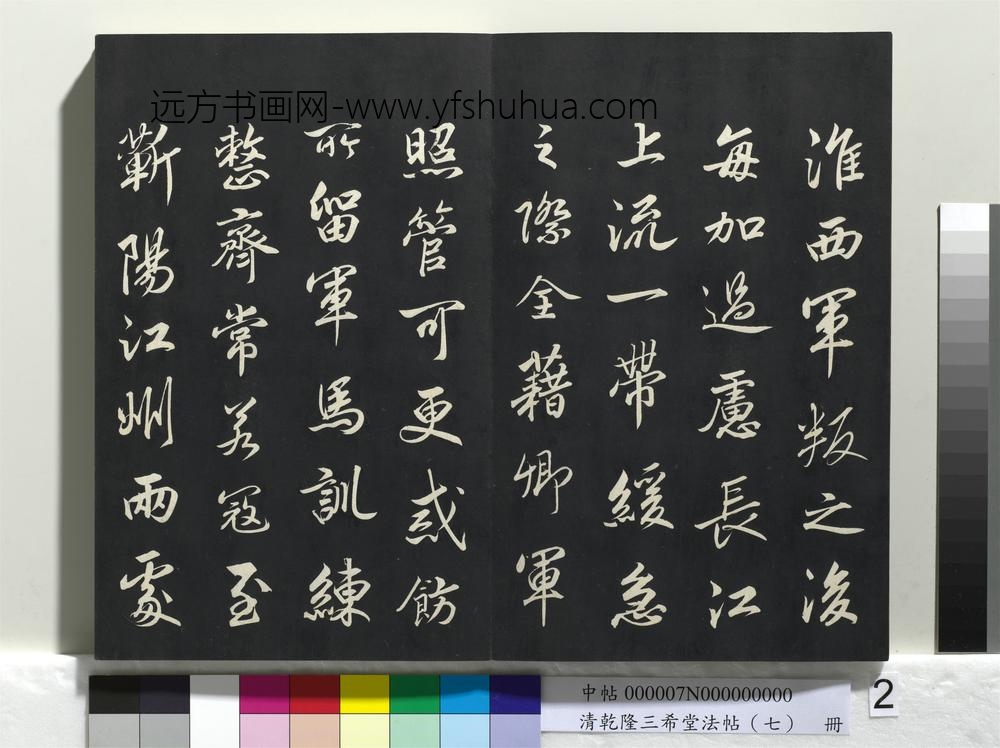 远方书画网-www.yfshuhua.com
淮西軍叛之後
每加過慮長江
上流一帶緩急
之際全藉卿軍
照管可更戒飭
所留軍馬訓練
整齊常若寇至
蘄陽江州兩處
中帖 000007N000000000
清乾隆三希堂法帖（七） 冊
2